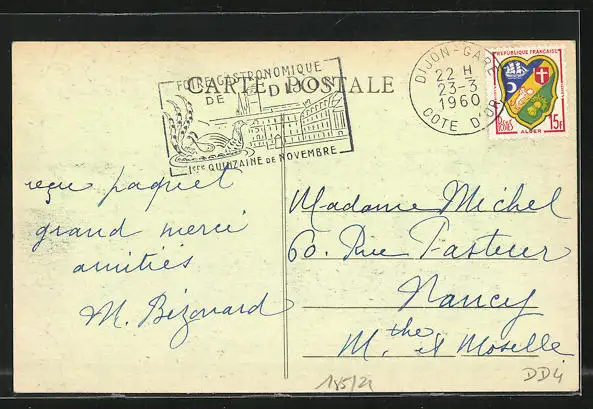 FOIRE GASTRONOMIQUE
DE DIJON
1ERE QUINZAINE DE NOVEMBRE
CARTE POSTALE
DIJON-GARE
22 H
23-3
1960
COTE D'OR
REPUBLIQUE FRANÇAISE
POSTES 15F
ALGER
reçu paquet
grand merci
amitiés
M. Bézouard
Madame Michel
60. Rue Pasteur
Nancy
M.the et Moselle
185/21
DD4